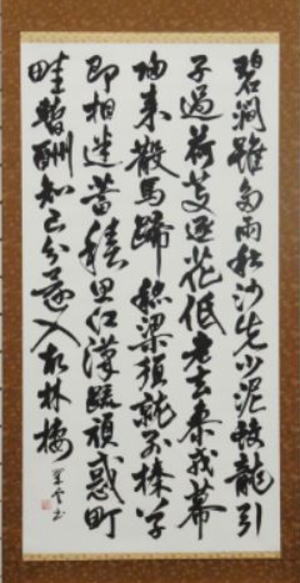 碧澗雖多雨秋沙先少泥蛟龍引
子過荷芰逐花低老去参戎幕
歸来散馬蹄稻梁須就列榛草
即相迷蓄積思江漢疏頑惑町
畦暫酬知己分還入故林棲